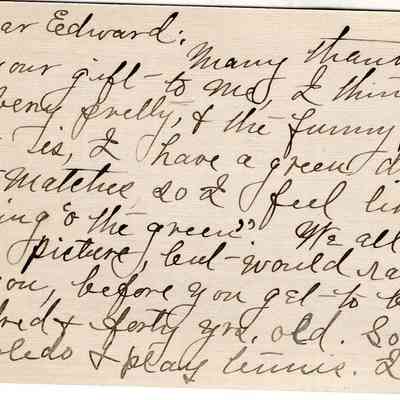 ar Edward:
Many than
your gift - to me, I thin
very pretty, & the funny
is, I have a green d
matches, so I feel li
ing "o the green". We all
picture, but - would ra
ou, before you get - to b
dred & forty yrs. old. So
oledo & play tennis. I